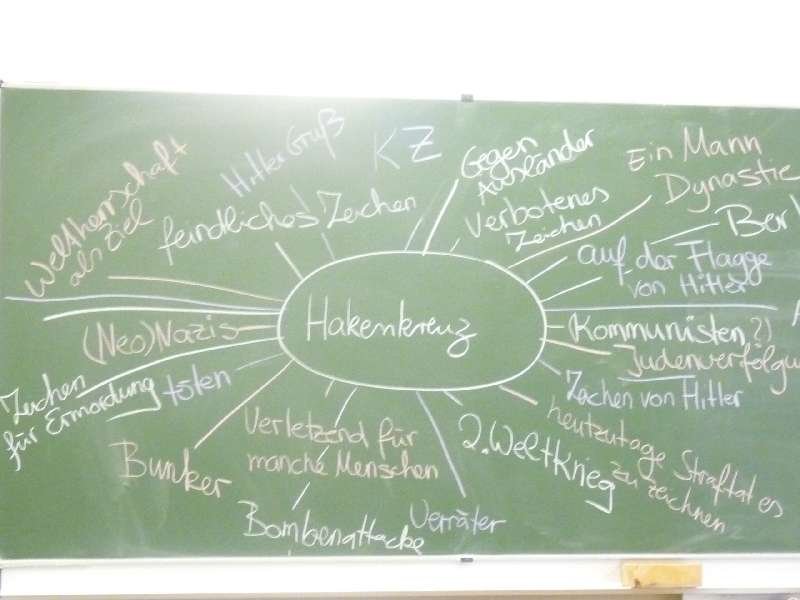 Hitler Gruß
KZ
Gegen
Ausländer
Ein Mann
Dynastie
Weltherrschaft
als Ziel
feindliches Zeichen
Verbotenes
Zeichen
auf der Flagge
von Hitler
Hakenkreuz
(Neo)Nazis
Kommunisten ?)
Judenverfolgu
Zeichen
für Ermordung
töten
Zeichen von Hitler
heutzutage Straftat es
zu zeichnen
2. Weltkrieg
Verletzend für
manche Menschen
Bunker
Bombenattacke
Verräter